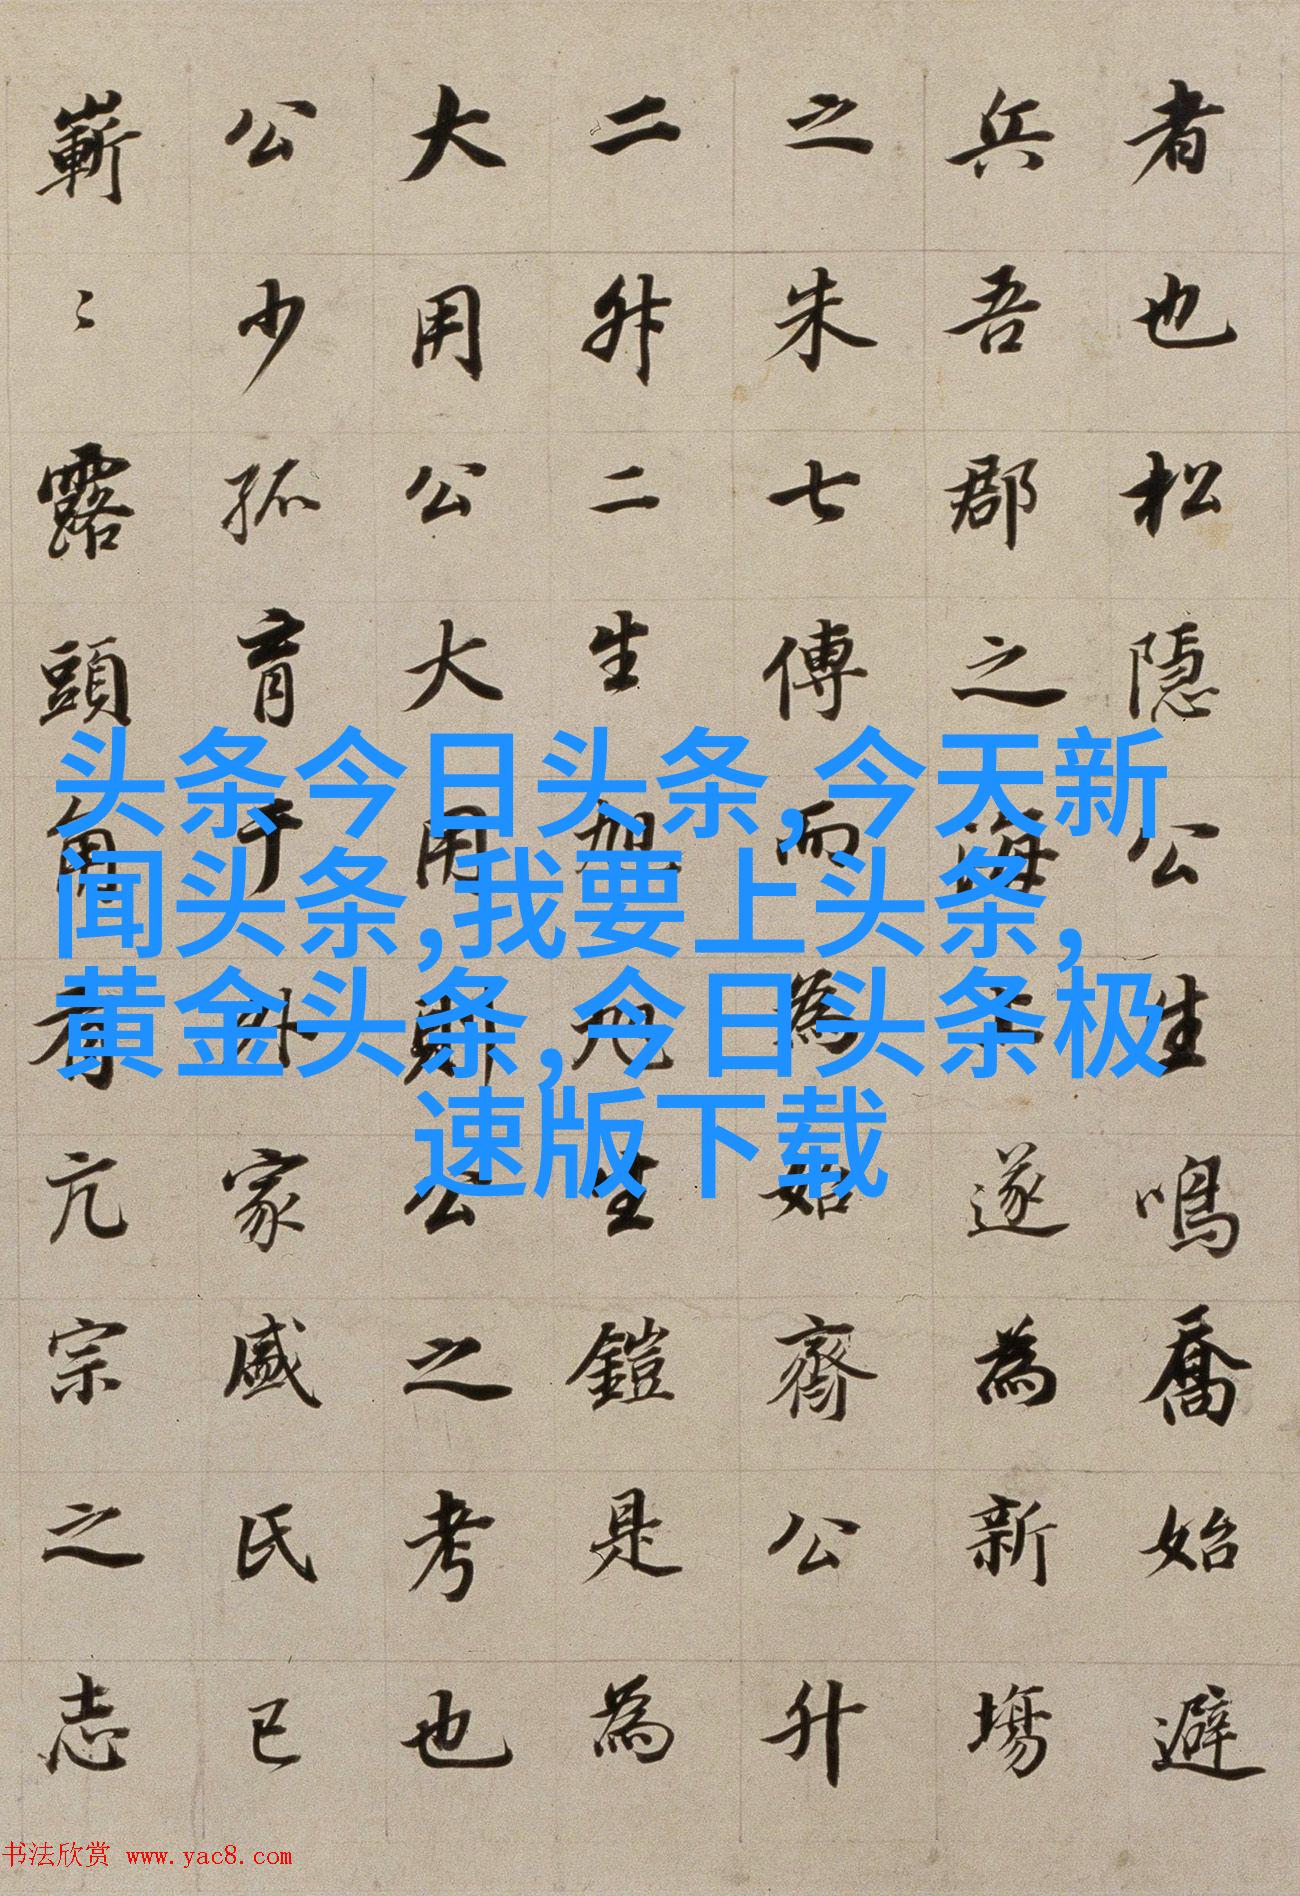 者也松隱公生鳴喬始避
兵吾郡之海上遂為新塲
之朱七傳而為始齊公升
二升二生旭旭生鎧是為
大用公大用則公之考也
公少孤育于外家戚氏已
嶄〻露頭角有亢宗之志
头条今日头条,今天新
闻头条,我要上头条,
黄金头条,今日头条极
速版下载
书法欣赏 www.yac8.com